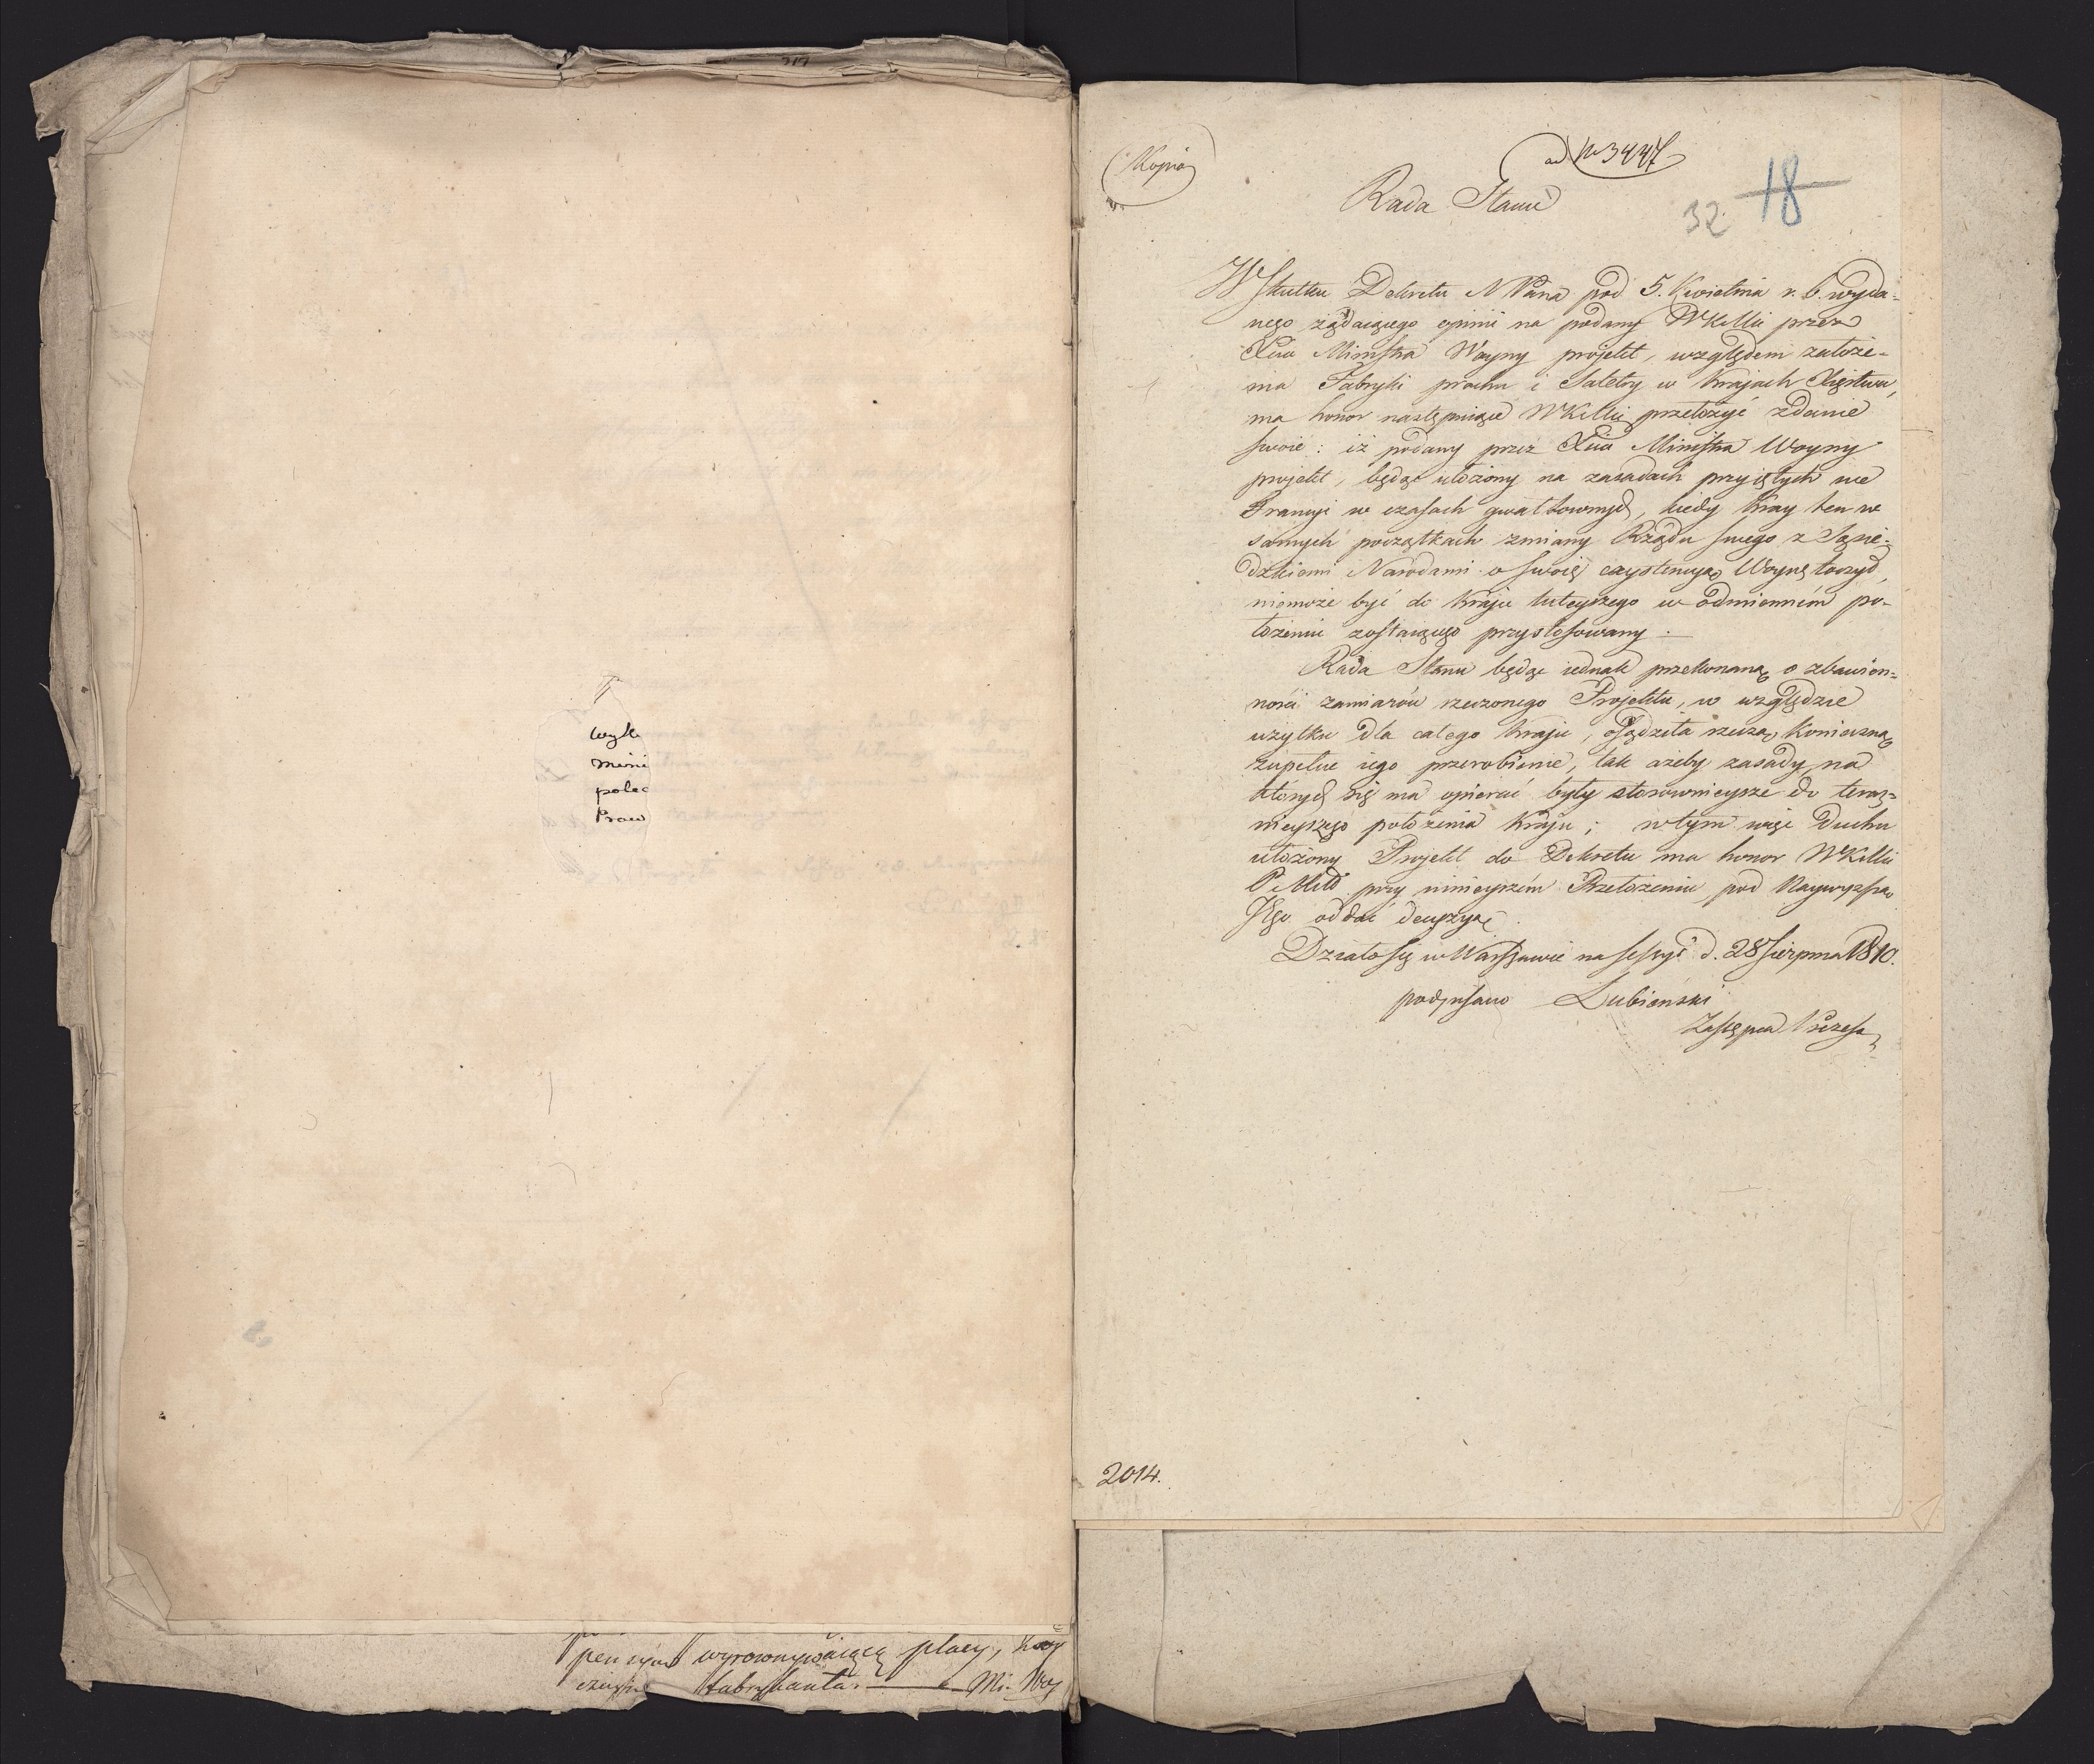 wyk
mini
polec
Praw
pensyą wyrownywaiącą płacy,
fabrykanta. — Mi. Woy
Kopia
ad Nro 3447
Rada Stanu
32 18
W Skutku Dekretu N Pana pod 5. Kwietnia r. b. wyda=
nego żądaiącego opinii na podany WKMci przez
Xcia Ministra Woyny projekt, względem założe-
nia Fabryki prochu i Saletry w Krajach Xięstwa,
ma honor następuiące WKMci przełożyć zdanie
swoie: iż podany przez Xcia Ministra Woyny
projekt, będąc ułożony na zasadach przyiętych we
Francyi w czasach gwałtownych, kiedy Kray ten w
samych początkach zmiany Rządu swego z Sąsie-
dzkiemi Narodami o swoię exystencyą Woynę toczył,
niemoże być do Kraju tuteyszego w odmienném po-
łożeniu zostaiącego przystosowany.
Rada Stanu będąc iednak przekonaną o zbawien=
ności zamiarów rzeczonego Projektu, w względzie
użytku dla całego Kraju, osądziła rzeczą konieczną
zupełne iego przerobienie, tak ażeby zasady, na
których się ma opierać były stosownieysze do teraz=
nieyszego położenia Kraju; w tym więc duchu
ułożony Projekt do Dekretu ma honor WKMci
P. Mił. przy ninieyszém Przełożeniu pod Naywyższą
Jego oddać decyzyą.
Działo się w Warszawie na Sessyi d. 28 Sierpnia 1810.
podpisano Łubieński
Zastępca Prezesa
2014.